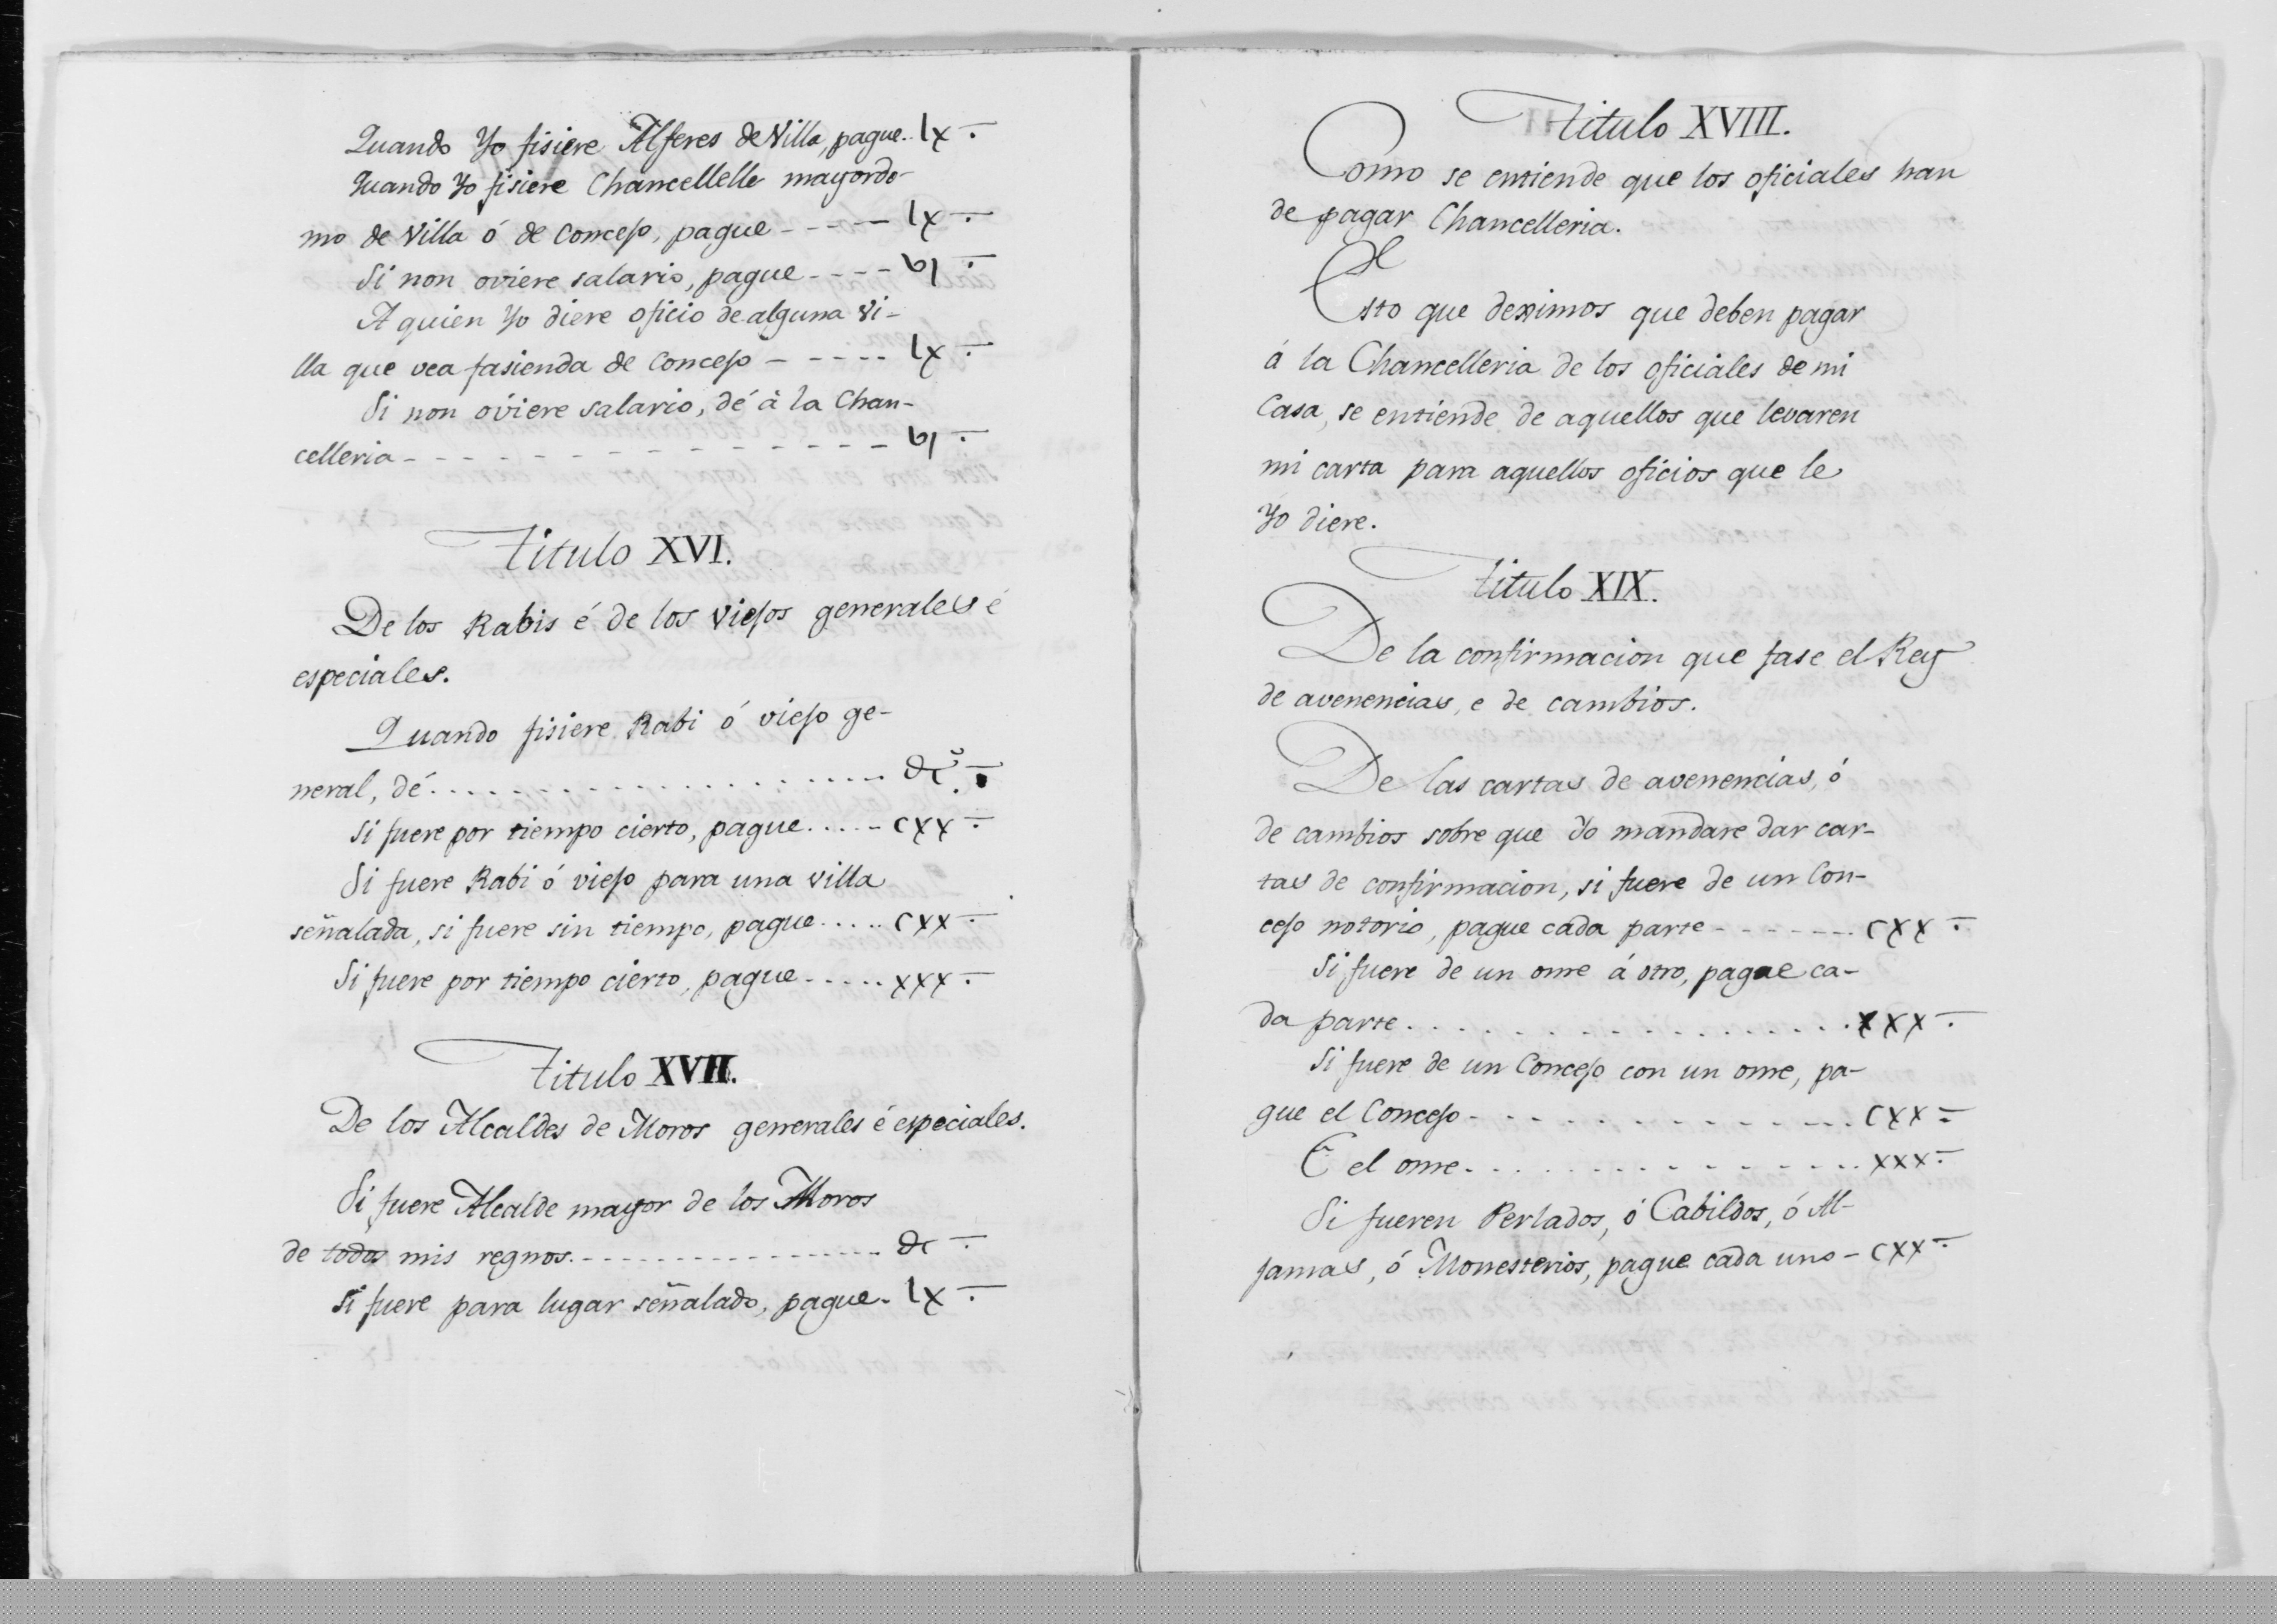 Quando Yo fisiere Alferes de Villa, pague.. lx
Quando Yo fisiere Chancellelle mayordo-
mo de Villa ó de Concejo, pague ----- lx
Si non oviere salario, pague ---- vj
A quien Yo diere oficio de alguna Vi-
lla que vea fasienda de Concejo ----- lx
Si non oviere salario, dé à la Chan-
celleria --------------- vj
Titulo XVI.
De los Rabis é de los Viejos generales é
especiales.
Quando fisiere Rabi ó viejo ge-
neral, dé ....................
Si fuere por tiempo cierto, pague ..... cxx
Si fuere Rabi ó viejo para una villa
señalada, si fuere sin tiempo, pague ..... cxx
Si fuere por tiempo cierto, pague ..... xxx
Titulo XVII.
De los Alcaldes de Moros generales é especiales.
Si fuere Alcalde mayor de los Moros
de todos mis regnos. ----------------
Si fuere para lugar señalado, pague - lx
Titulo XVIII.
Como se entiende que los oficiales han
de pagar Chancelleria.
Esto que deximos que deben pagar
á la Chancelleria de los oficiales de mi
Casa, se entiende de aquellos que levaren
mi carta para aquellos oficios que le
Yo diere.
Titulo XIX.
De la confirmacion que fase el Rey
de avenencias, e de cambios.
De las cartas de avenencias, ó
de cambios sobre que Yo mandare dar car-
tas de confirmacion, si fuere de un Con-
cejo notorio, pague cada parte ------- cxx
Si fuere de un ome á otro, pague ca-
da parte .................. xxx
Si fuere de un Concejo con un ome, pa-
gue el Concejo -------------- cxx
E el ome ............... xxx
Si fueren Perlados, ó Cabildos, ó Al-
jamas, ó Monesterios, pague cada uno - cxx